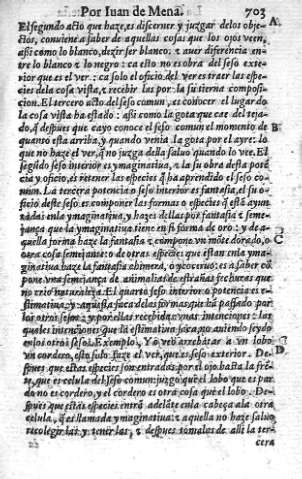 Por Iuan de Mena. 703
El segundo acto que haze, es discerner y juzgar delos obje- A
ctos, conuiene a saber de aquellas cosas que los ojos veen,
assi como lo blanco, dezir ser blanco: & auer diferencia en-
tre lo blanco & lo negro: ca esto no es obra del seso exte
rior que es el ver: ca solo el oficio del ver es traer las espe
cies dela cosa vista, & recebir las por la su tierna composi-
cion. El tercero acto del seso comun, es conocer el lugar do
la cosa vista ha estado: assi como la gota que cae del teja-
do, q̃ despues que cayo conoce el seso comun el momento de B
quanto esta arriba, y quando venia la gota por el ayre: lo
que no haze el ver, q̃ no juzga della saluo quando lo vee. El
segũdo seso interior es ymaginatiua, & la su obra desta potẽ
cia y oficio, es retener las especies q̃ ha aprendido el seso co
mun. La tercera potencia o seso interior es fantasia, el su o-
ficio deste seso es componer las formas o especies q̃ estã ayun
tadas enla ymaginatiua, y haze dellas por fantasia & seme-
jança que la ymaginatiua tiene en si forma de oro: y de a-
quella forma haze la fantasia & cõpone vn mõte dorado, o C
otra cosa semejante: o de otras especies que estan enla yma
ginatiua haze la fantasia chimera, o ycoceruo: es a saber cõ
pone vna semejança de animalias de estrañas fechuras que
no crio naturaleza. El quarto seso interior o potencia es e-
stimatiua: y aquesta saca delas formas, que hã passado por
los otros sesos: y por ellas recebidas vnas intenciones: las
quales intenciones que la estimatiua saca, no auiendo seydo
en los otros sesos. Exemplo, Yo veo arrebatar a vn lobo
vn cordero, esto solo haze el ver, que es seso exterior. Des- D
pues que estas especies son entradas por el ojo hasta la frẽ-
te, que es celula del seso comun: juzgo que el lobo que es par
do no es cordero, y el cordero es otra cosa que el lobo. Des-
pues que estas especies entrã adelãte enla cabeça ala otra
celula, q̃ es llamada ymaginatiua: & aquella no haze saluo
recolegir las y tener las, & despues tomalas de alli la ter-
cera